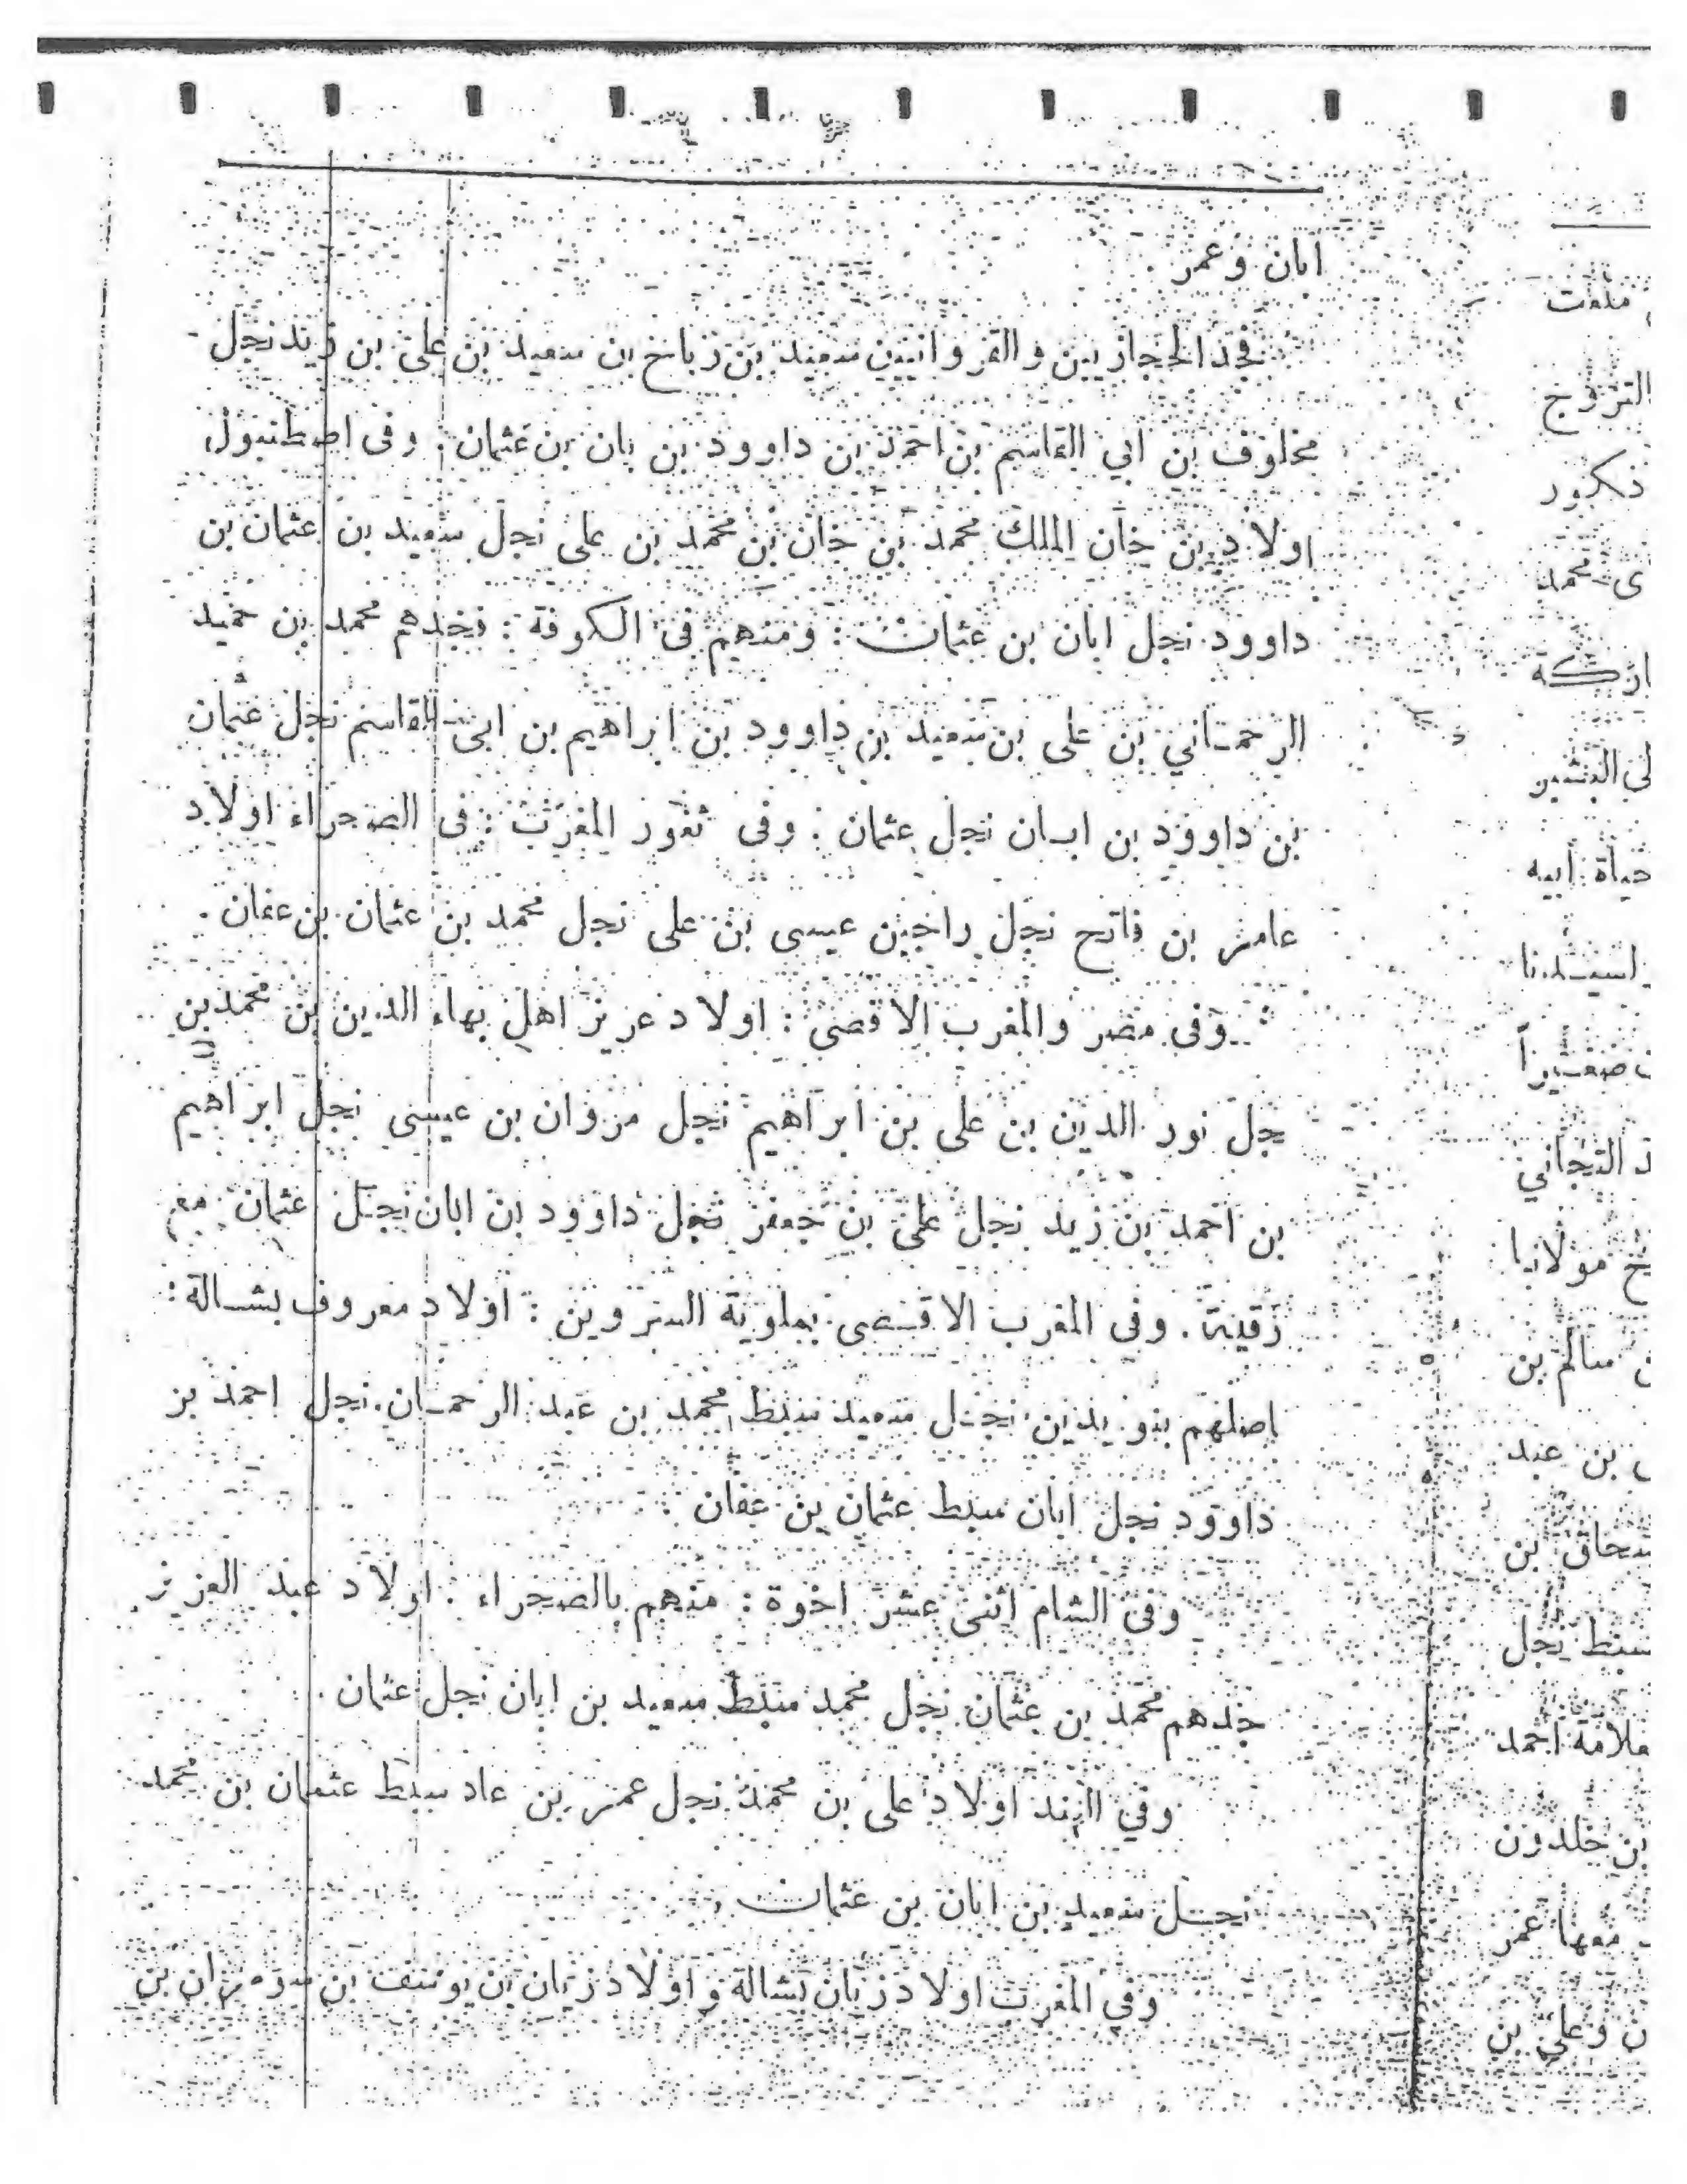 ابان وعمر .
فجد الحجازيين والقروانيين سعيد بن رباح بن سعيد بن على بن زيد نجل
مخلوف بن ابي القاسم بن احمد بن داوود بن بان بن عثمان : وفى اصطنبول
اولاد بن خان الملك محمد بن خان بن محمد بن على نجل سعيد بن عثمان بن
داوود نجل ابان بن عثمان : ومنهم فى الكوفة : فجدهم محمد بن حميد
الرحماني بن على بن سعيد بن داوود بن ابراهيم بن ابى القاسم نجل عثمان
بن داوود بن ابان نجل عثمان : وفى ثغور المغرب : فى الصحراء اولاد
عامر بن فاتح نجل راجين عيسى بن على نجل محمد بن عثمان بن عفان .
وفى مصر والمغرب الاقصى : اولاد عزيز اهل بهاء الدين بن محمد بن
جل نور الدين بن على بن ابراهيم نجل مروان بن عيسى نجل ابراهيم
بن احمد بن زيد نجل على بن جعفر نجل داوود بن ابان نجل عثمان
رقية . وفى المغرب الاقصى بملوية : اولاد معروف بشالة :
اصلهم بنو يدين نجل سعيد سبط محمد بن عبد الرحمان نجل احمد بن
داوود نجل ابان سبط عثمان بن عفان :
وفى الشام اثنى عشر اخوة : منهم بالصحراء : اولاد عبد العزيز
جدهم محمد بن عثمان نجل محمد سبط سعيد بن ابان نجل عثمان .
وفي الهند اولاد على بن محمد نجل عمر بن عاد سبط عثمان بن محمد
نجل سعيد بن ابان بن عثمان .
وفى المغرب اولاد زيان بشالة و اولاد زيان بن يوسف بن بن
ملفت
التزوج
ذكور
ى محمد
اركة
لى البشير
حياة أبيه
لسيدنا
صغيراً
د التجاني
خ مولانا
سالم بن
بن عبد
سحاق بن
سبط نجل
علامة احمد
بن خلدون
معها عمر
ن وعلى بن